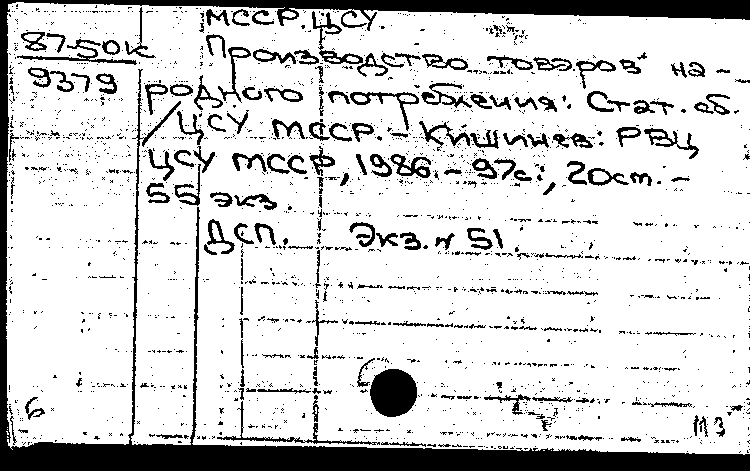 МССР. ЦСУ.
87-50к
9379
Производство товаров на-
родного потребления: Стат. сб.
/ ЦСУ МССР. - Кишинев: РВЦ
ЦСУ МССР, 1986. - 97с.; 20см. -
55 экз.
ДСП. Экз. № 51.
6
М 3